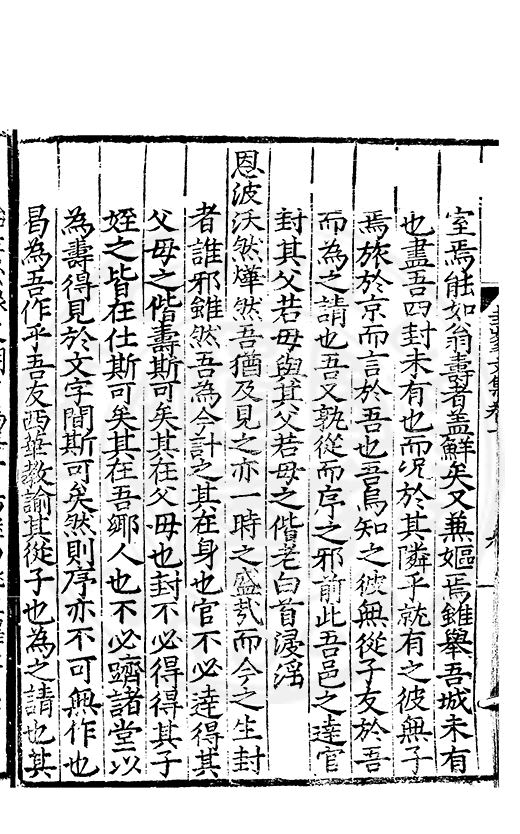 室焉能如翁壽者盖鮮矣又兼嫗焉雖舉吾城未有
也盡吾四封未有也而况於其隣乎就有之彼無子
焉旅於京而言於吾也吾烏知之彼無從子友於吾
而為之請也吾又孰從而序之邪前此吾邑之達官
封其父若母與其父若母之偕老白首浸淫
恩波沃然燁然吾猶及見之亦一時之盛㢤而今之生封
者誰邪雖然吾為今計之其在身也官不必達得其
父母之偕壽斯可矣其在父母也封不必得得其子
姪之皆在仕斯可矣其在吾鄉人也不必躋諸堂以
為壽得見於文字間斯可矣然則序亦不可無作也
曷為吾作乎吾友西華教諭其從子也為之請也其